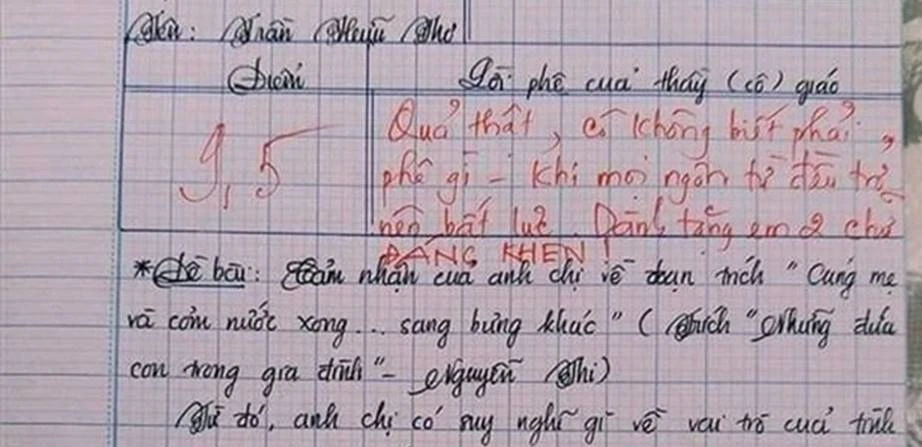 Tên: Trần Hữu Thơ
Điểm
Lời phê của thầy (cô) giáo
9,5
Quả thật, cô không biết phải
phê gì - khi mọi ngôn từ đều trở
nên bất lực. Dành tặng em 2 chữ
ĐÁNG KHEN!
*Đề bài: Cảm nhận của anh chị về đoạn trích "Cúng mẹ
và cơm nước xong... sang bưng khác" (Trích "Những đứa
con trong gia đình" - Nguyễn Thi)
Từ đó, anh chị có suy nghĩ gì về vai trò của tình